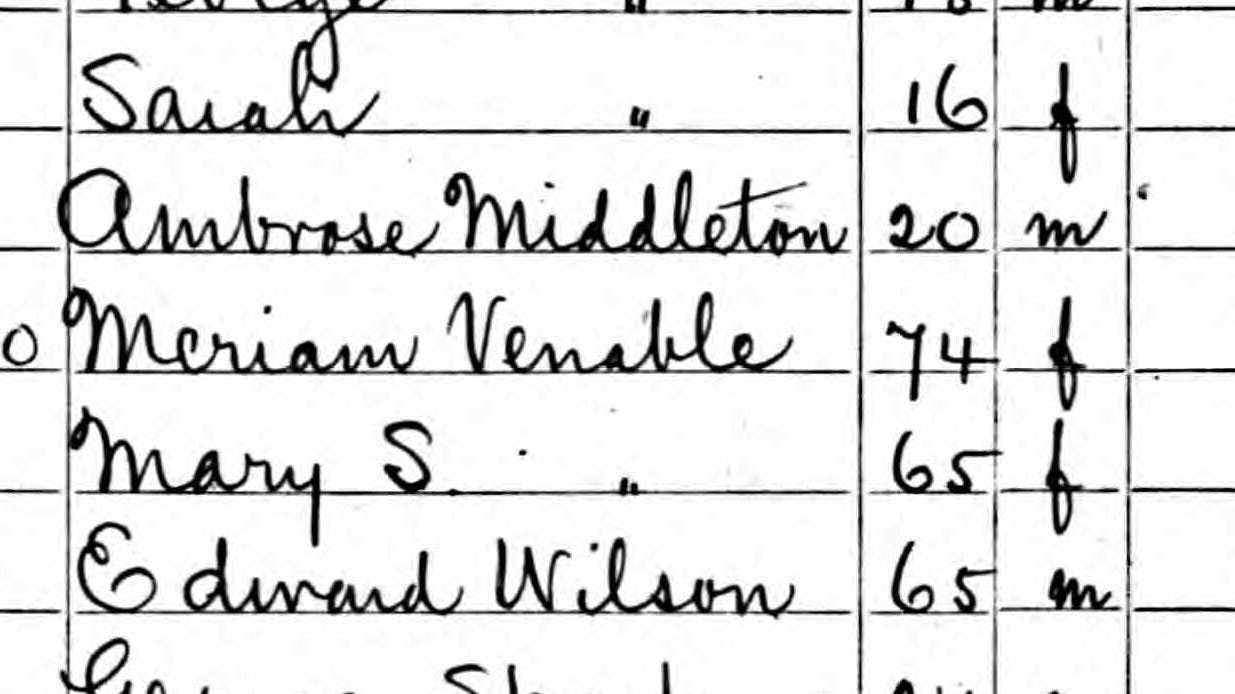 George " 18 m
Sarah " 16 f
Ambrose Middleton 20 m
0 Meriam Venable 74 f
Mary S. " 65 f
Edward Wilson 65 m